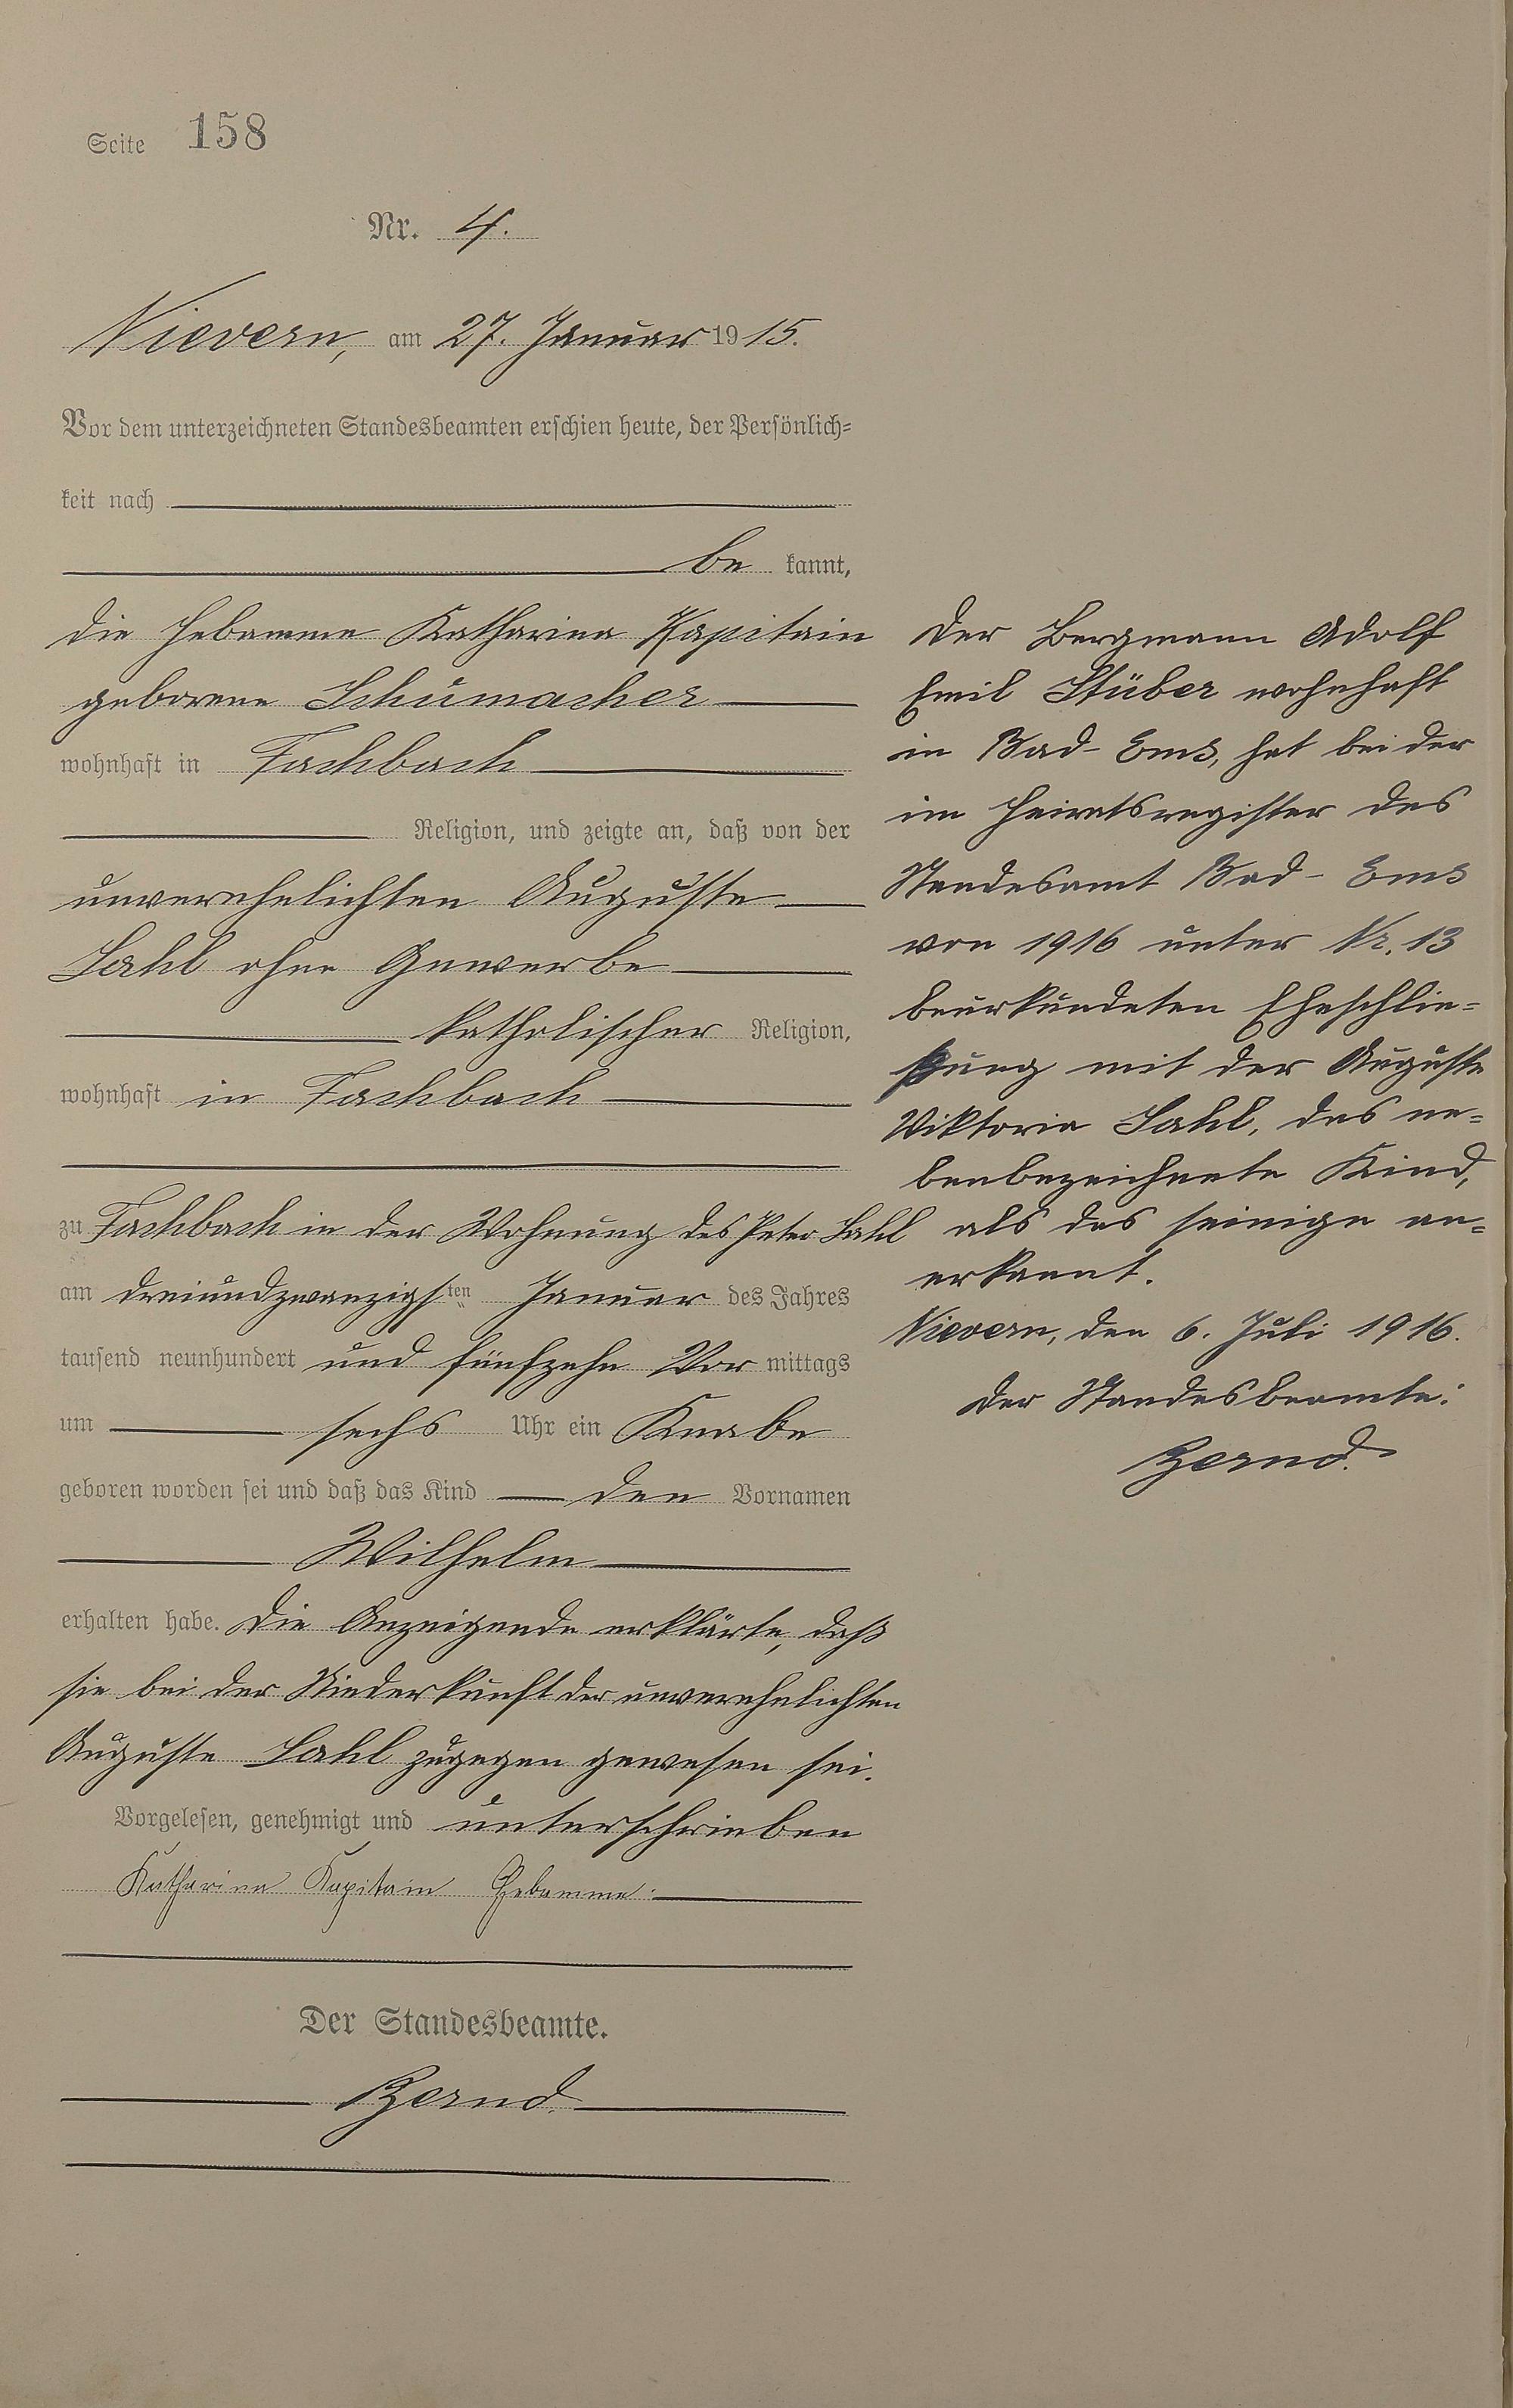 Seite 158
Nr. 4.
Nievern, am 27. Januar 1915.
Vor dem unterzeichneten Standesbeamten erschien heute, der Persönlich=
keit nach
be kannt,
die Hebamme Katharina Kapitain
geborene Schumacher
wohnhaft in Fachbach
Religion, und zeigte an, daß von der
unverehelichten Auguste
Sahl ohne Gewerbe
katholischer Religion,
wohnhaft in Fachbach
zu Fachbach in der Wohnung des Peter Sahl
am dreiundzwanzigsten Januar des Jahres
tausend neunhundert und fünfzehn Vor mittags
um sechs Uhr ein Knabe
geboren worden sei und daß das Kind den Vornamen
Wilhelm
erhalten habe. Die Anzeigende erklärte, daß
sie bei der Niederkunft der unverehelichten
Auguste Sahl zugegen gewesen sei.
Vorgelesen, genehmigt und unterschrieben
Katharina Kapitain Hebamme.
Der Standesbeamte.
Zernd.
Der Bergmann Adolf
Emil Stüber wohnhaft
in Bad-Ems, hat bei der
im Heiratsregister des
Standesamt Bad-Ems
von 1916 unter Nr. 13
beurkundeten Eheschlie=
ßung mit der Auguste
Viktoria Sahl, das ne=
benbezeichnete Kind,
als das seinige an=
erkannt.
Nievern, den 6. Juli 1916.
Der Standesbeamte:
Zernd.